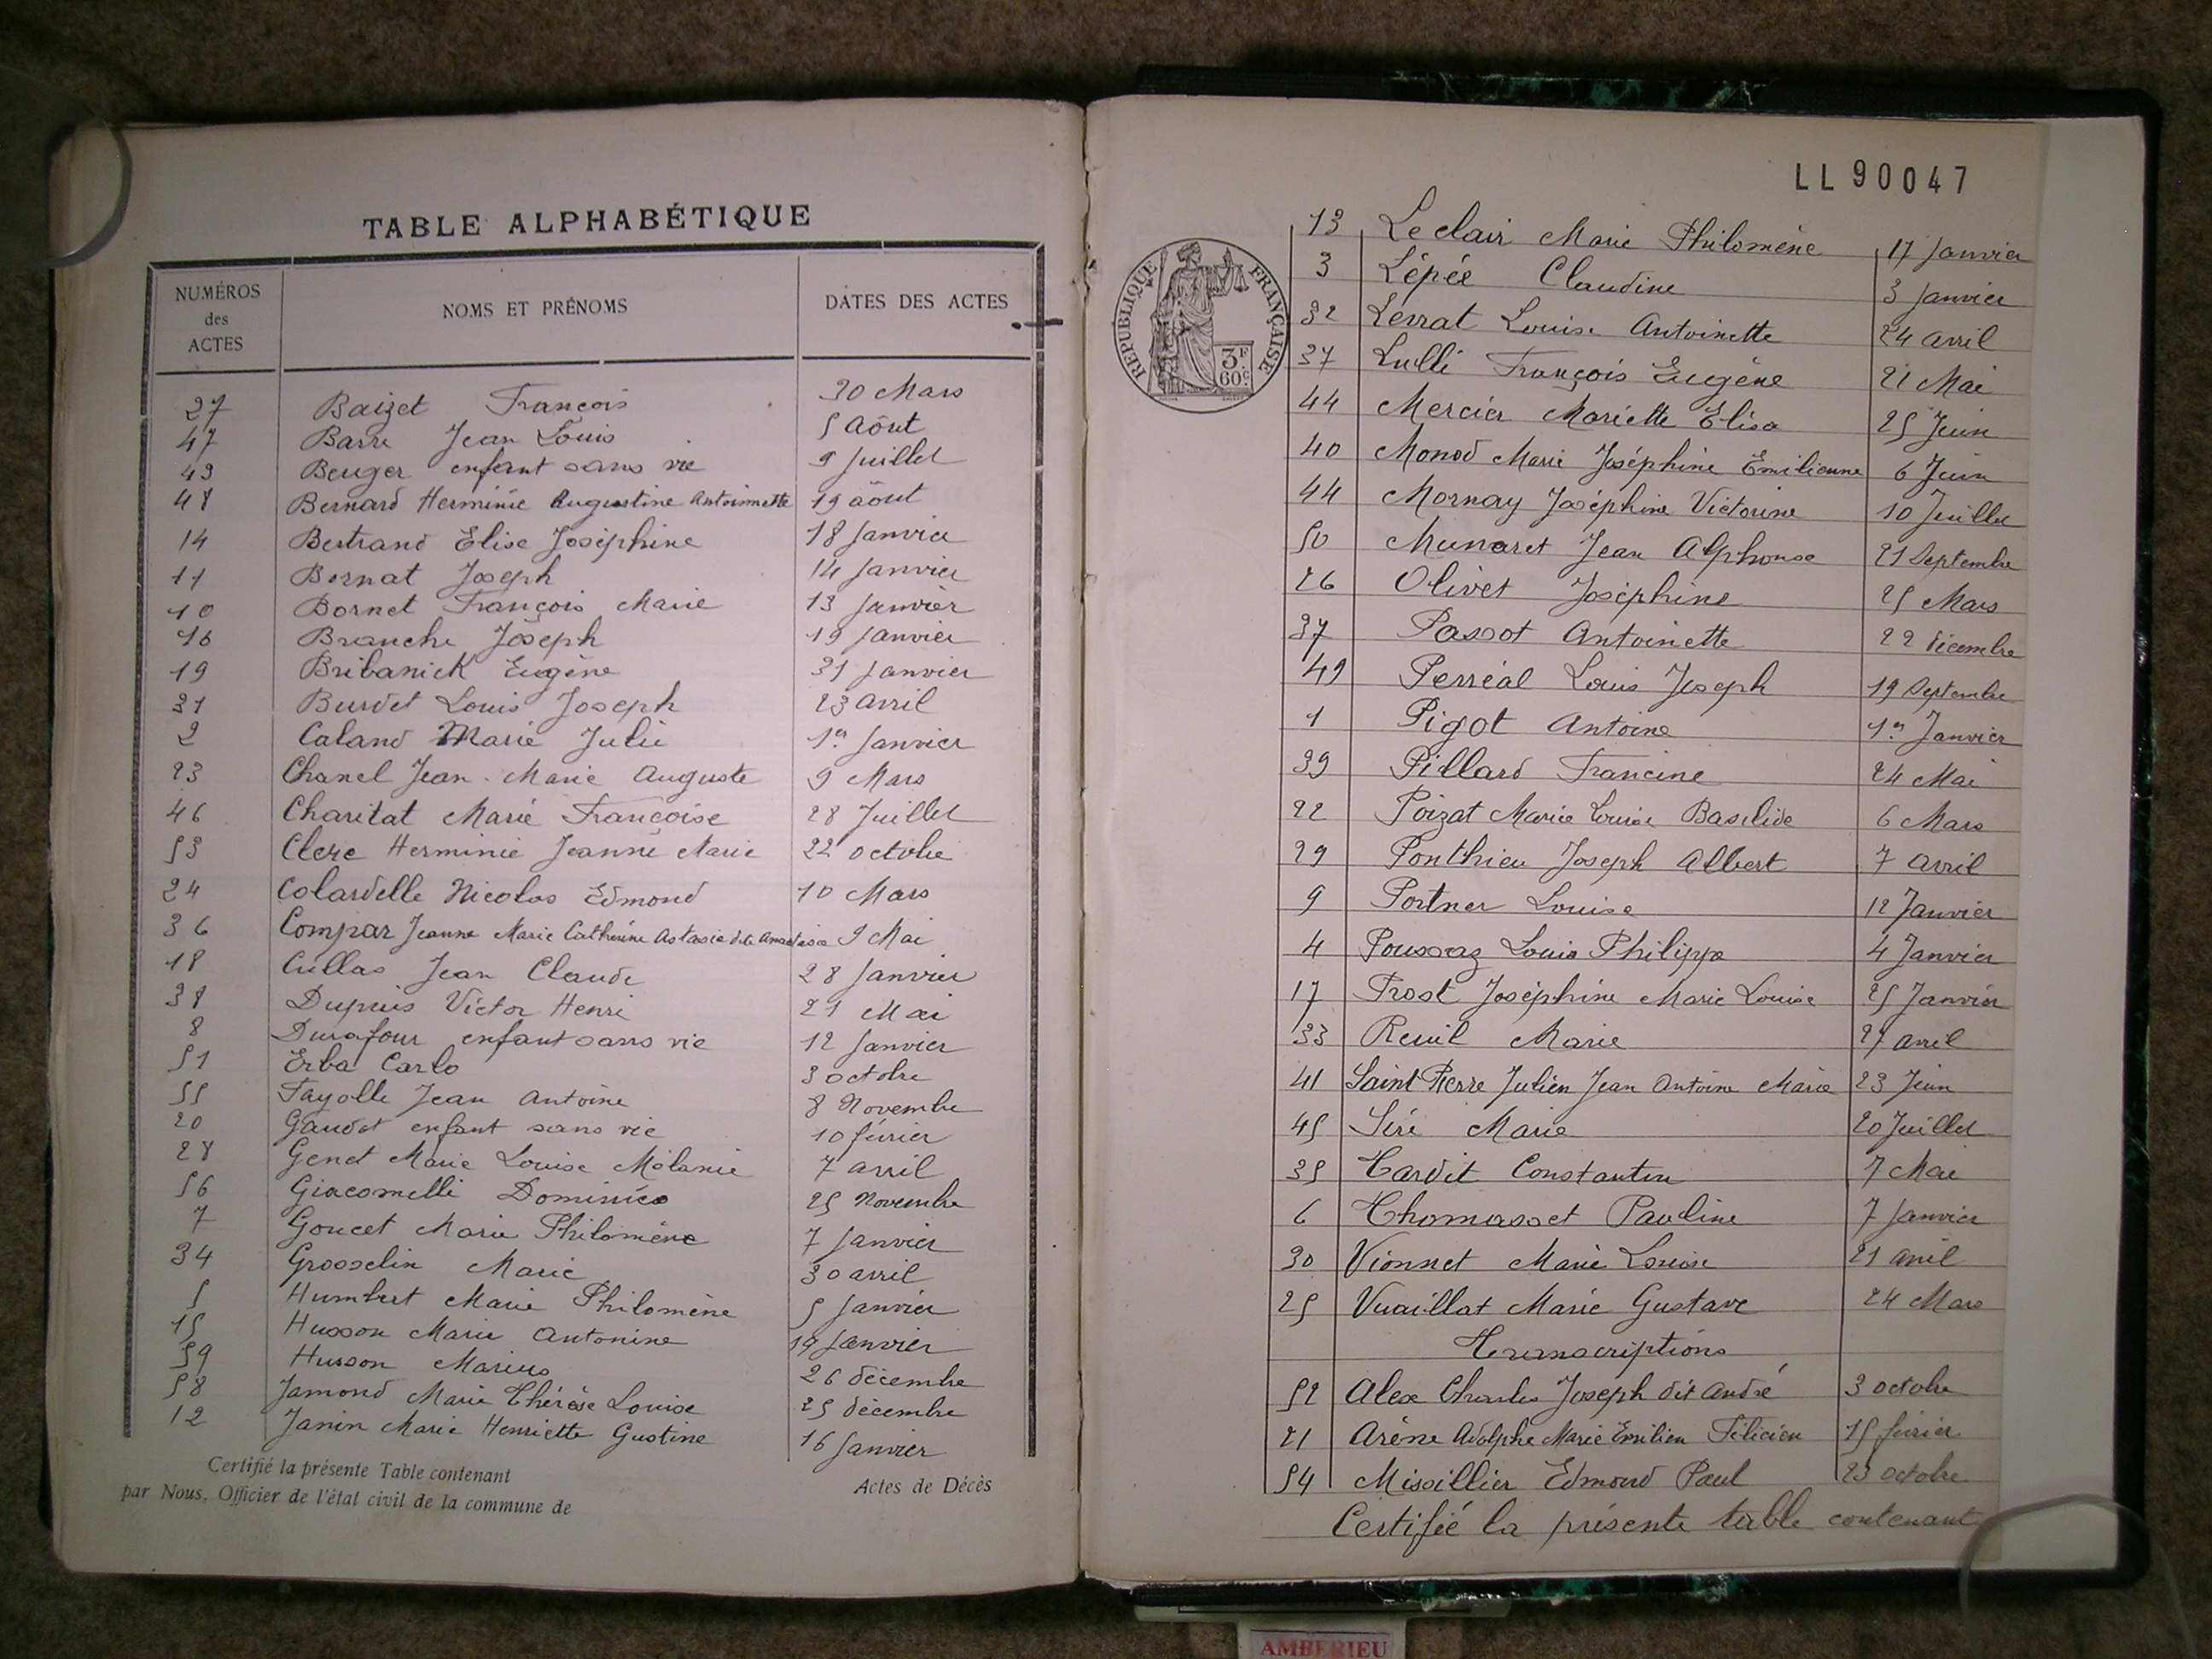 TABLE ALPHABÉTIQUE
NUMÉROS des ACTES NOMS ET PRÉNOMS DATES DES ACTES
27 Baizet François 30 Mars
47 Barre Jean Louis 5 Aôut
43 Beuger enfant sans vie 9 Juillet
48 Bernard Herminie Augustine Antoinnette 19 aôut
14 Bertrand Elise Joséphine 18 Janvier
11 Bornat Joseph 14 Janvier
10 Bornet François Marie 13 Janvier
16 Branche Joseph 19 Janvier
19 Bribanick Eugène 31 Janvier
31 Burdet Louis Joseph 23 avril
2 Caland Marie Julie 1er Janvier
23 Chanel Jean-Marie Auguste 9 Mars
46 Charitat Marie Françoise 28 Juillet
53 Clerc Herminie Jeanne Marie 22 octobre
24 Colardelle Nicolas Edmond 10 Mars
36 Compar Jeanne Marie Cathérine Astasie dite Anastasie 9 Mai
18 Cullas Jean Claude 28 Janvier
38 Dupuis Victor Henri 21 Mai
8 Durafour enfant sans vie 12 Janvier
51 Erba Carlo 3 octobre
55 Fayolle Jean Antoine 8 Novembre
20 Gaudet enfant sans vie 10 février
28 Genet Marie Louise Mélanie 7 avril
56 Giacomelli Dominico 25 Novembre
7 Goucet Marie Philomène 7 Janvier
34 Grosselin Marie 30 avril
5 Humbert Marie Philomène 5 Janvier
15 Husson Marie Antonine 19 Janvier
59 Husson Marius 26 décembre
58 Jamond Marie Thérèse Louise 25 décembre
12 Janin Marie Henriette Gustine 16 Janvier
Certifié la présente Table contenant Actes de Décès
par Nous, Officier de l'état civil de la commune de
LL 90047
RÉPUBLIQUE FRANÇAISE
3F
60c
13 Leclair Marie Philomène 17 Janvier
3 Lépée Claudine 3 Janvier
32 Levrat Louise Antoinette 24 avril
37 Lulli François Eugène 21 Mai
44 Mercier Mariette Elisa 25 Juin
40 Monod Marie Joséphine Emilienne 6 Juin
44 Mornay Joséphine Victorine 10 Juillet
50 Munaret Jean Alphonse 21 Septembre
26 Olivet Joséphine 25 Mars
37 Passot Antoinette 22 décembre
49 Perréal Louis Joseph 19 Septembre
1 Pigot Antoine 1er Janvier
39 Pillard Francine 24 Mai
22 Poizat Marie Louise Basilide 6 Mars
29 Ponthieu Joseph Albert 7 avril
9 Portner Louise 12 Janvier
4 Poussaz Louis Philippe 4 Janvier
17 Prost Joséphine Marie Louise 25 Janvier
33 Reuil Marie 27 avril
41 Saint Pierre Julien Jean Antoine Marie 23 Juin
45 Séré Marie 20 Juillet
35 Tardit Constantin 7 Mai
6 Thomasset Pauline 7 Janvier
30 Vionnet Marie Louise 21 avril
25 Vuaillat Marie Gustave 24 Mars
Transcriptions
52 Alex Charles Joseph dit André 3 octobre
21 Arène Adolphe Marie Emilien Félicien 15 février
54 Missillier Edmond Paul 23 octobre
Certifié la présente table contenant
AMBERIEU